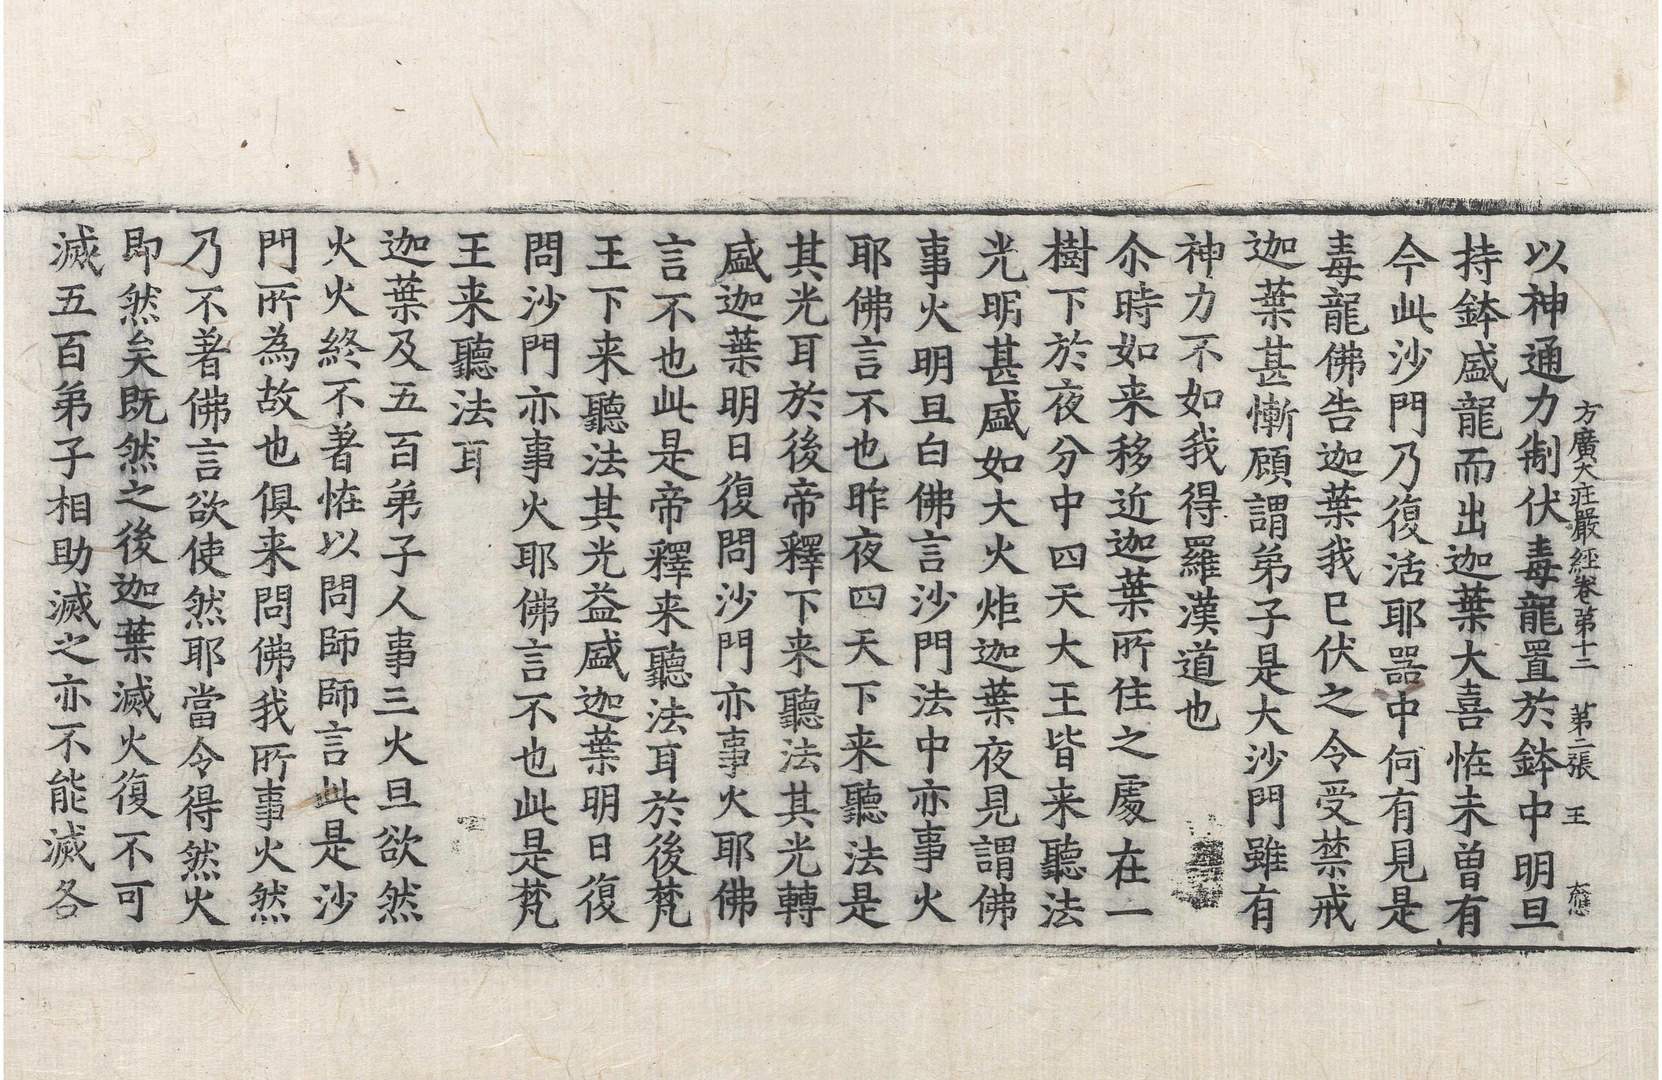 方廣大莊嚴經卷第十二 第二張 王
以神通力制伏毒龍置於鉢中明旦
持鉢盛龍而出迦葉大喜恠未曽有
今此沙門乃復活耶噐中何有見是
毒龍佛告迦葉我已伏之令受禁戒
迦葉甚慚顧謂弟子是大沙門雖有
神力不如我得羅漢道也
尒時如来移近迦葉所住之處在一
樹下於夜分中四天大王皆来聽法
光明甚盛如大火炬迦葉夜見謂佛
事火明旦白佛言沙門法中亦事火
耶佛言不也昨夜四天下来聽法是
其光耳於後帝釋下来聽法其光轉
盛迦葉明日復問沙門亦事火耶佛
言不也此是帝釋来聽法耳於後梵
王下来聽法其光益盛迦葉明日復
問沙門亦事火耶佛言不也此是梵
王来聽法耳
迦葉及五百弟子人事三火旦欲然
火火終不著恠以問師師言此是沙
門所為故也俱来問佛我所事火然
乃不著佛言欲使然耶當令得然火
即然矣既然之後迦葉滅火復不可
滅五百弟子相助滅之亦不能滅各